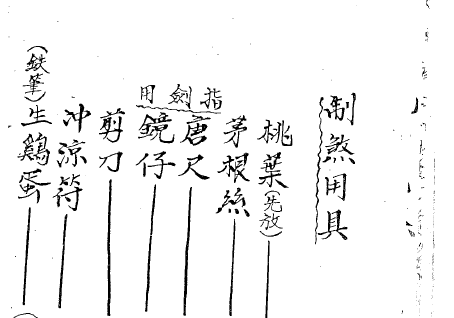 制煞用具
桃葉(先放)
茅根絲
指劍用
唐尺
鏡仔
剪刀
沖涼符
(鉄筆)生鷄蛋